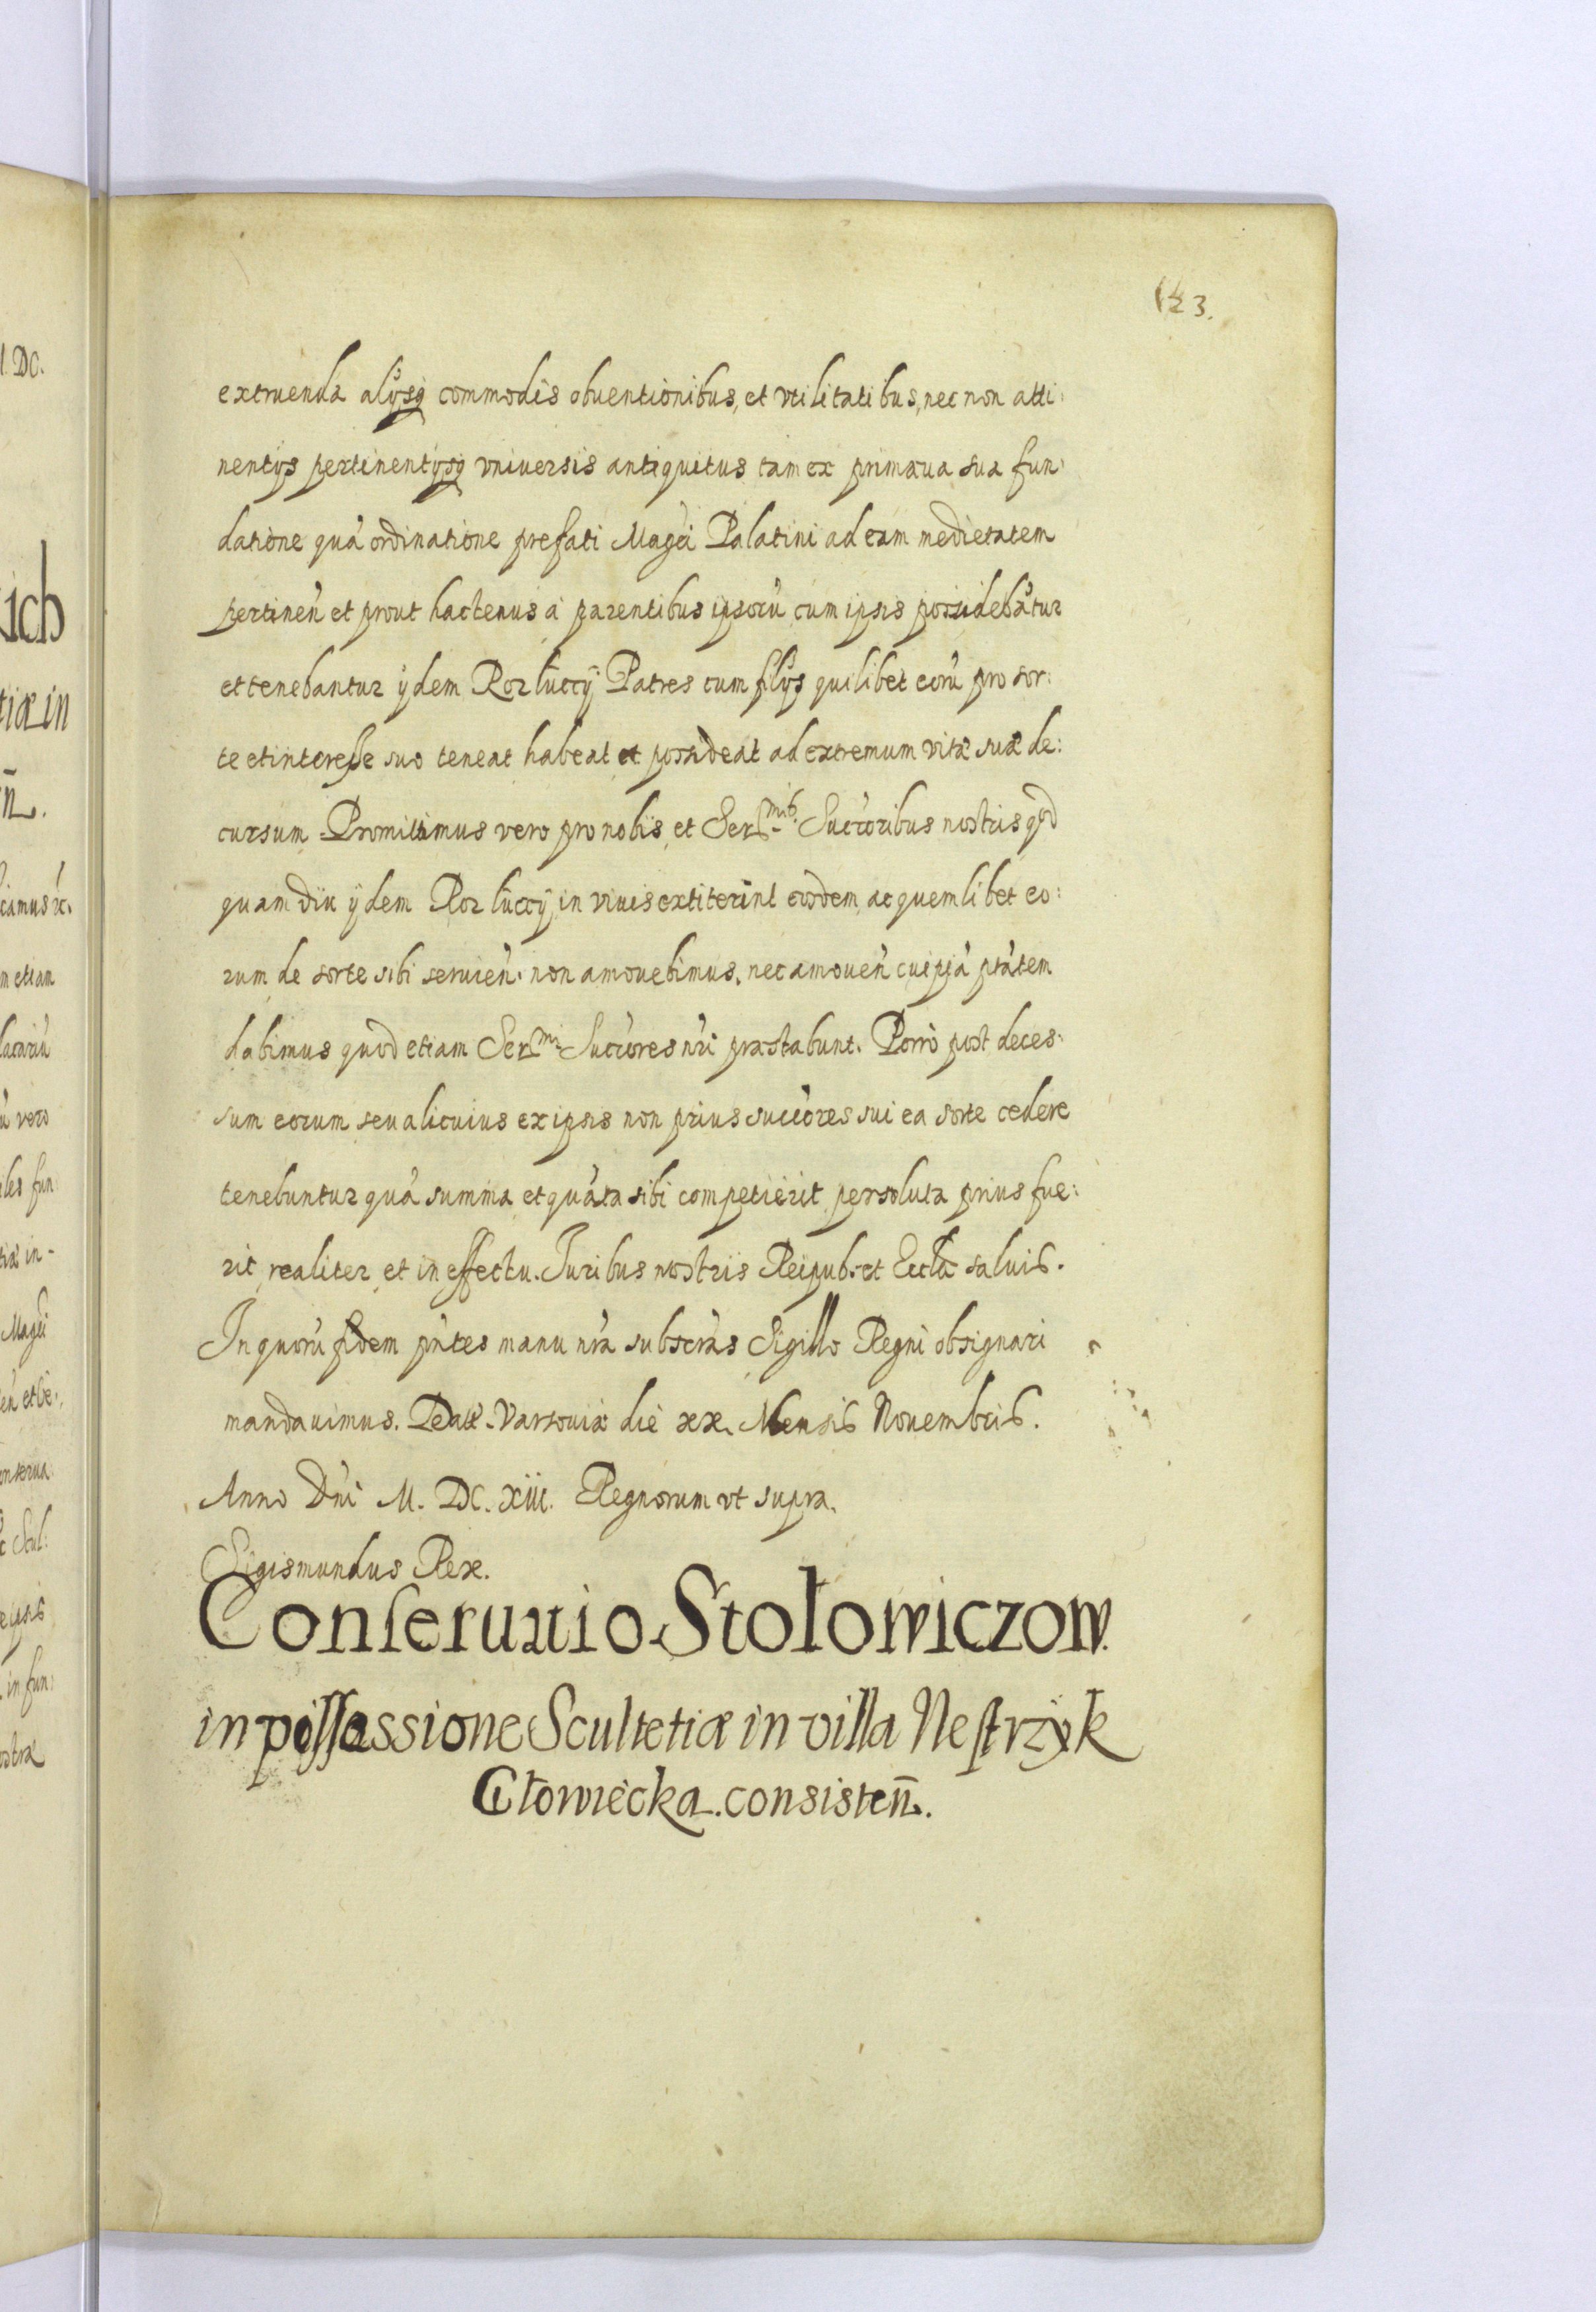 123.
extruenda alijsq; commodis obuentionibus, et vtilitatibus, nec non atti:
nentijs pertinentijsq; vniuersis antiquitus tam ex primæua sua fun:
datione quā ordinatione prefati Magci Palatini ad eam medietatem
pertineñ et prout hactenus á parentibus ipsorū cum ipsis possidebātur
et tenebantur ijdem Rozłuccÿ Patres cum filijs quilibet eorū pro sor:
te et interesse suo teneat habeat et possideat ad extremum vitæ suæ de:
cursum. Promittimus vero pro nobis, et Ser.mis Succoribus nostris qđ
quamdiu ijdem Rozłuccÿ in viuis extiterint eosdem, ac quemlibet eo:
rum de sorte sibi servieñ. non amovebimus, nec amoueñ cuipiā ptātem
dabimus quod etiam Ser.mi Succores nri præstabunt. Porrò post deces:
sum eorum seu alicuius ex ipsis non prius succores sui ea sorte cedere
tenebuntur quā summa et quāta sibi competierit persoluta prius fue:
rit, realiter, et in effectu. Juribus nostris Reipub. et Ecclæ saluis.
In quorū fidem pñtes manu nra subscras Sigillo Regni obsignari
mandauimus. Datt. Varsouiæ die xx. Mensis Nouembris.
Anno Dni M. DC. XIII. Regnorum vt supra.
Sigismundus Rex.
Conseruatio Stołowiczow.
in possassione Scultetiæ in villa Nestrzyk
Głowiecka. consisteñ.